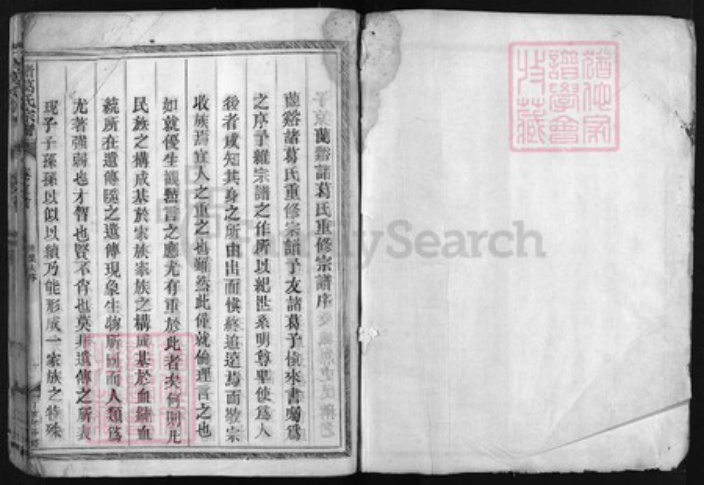 蘭谿諸葛氏重修宗譜序
蘭谿諸葛氏重修宗譜予友諸葛子愼來書囑爲
之序予維宗譜之作所以紀世系明尊卑使爲人
後者咸知其身之所由出而愼終追遠焉而敬宗
收族焉宜人之重之也雖然此僅就倫理言之也
如就優生觀點言之應尤有重於此者矣何則凡
民族之構成基於家族家族之構成基於血統血
統所在遺傳隨之遺傳現象生物所同而人類爲
尤著強弱也才智也賢不肖也莫非遺傳之所表
現子子孫孫以似以續乃能形成一家族之特殊
諸葛氏宗譜
FamilySearch